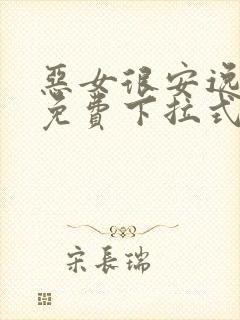 惡女很安逸
免費下拉式
宋長瑞